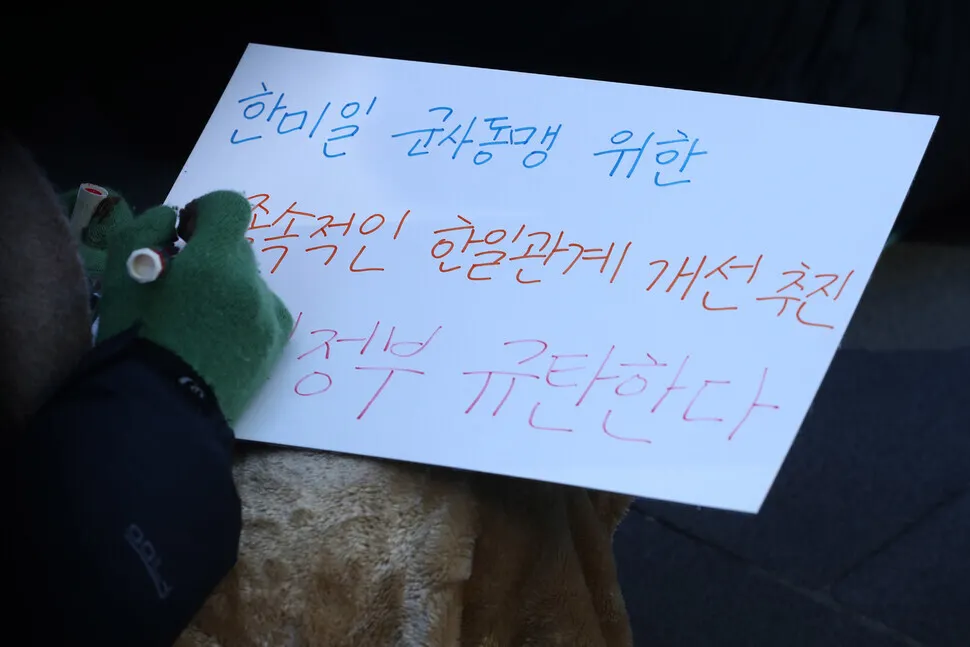 한미일 군사동맹 위한
종속적인 한일관계 개선 추진
정부 규탄한다